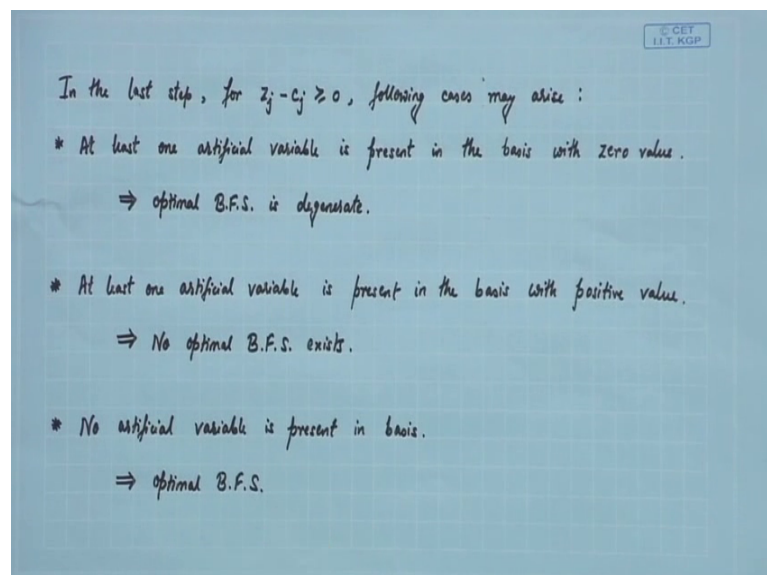 © CET
I.I.T. KGP
In the last step, for zj - cj ⩾ 0, following cases may arise :
* At least one artificial variable is present in the basis with zero value.
⇒ optimal B.F.S. is degenerate.
* At least one artificial variable is present in the basis with positive value.
⇒ No optimal B.F.S. exists.
* No artificial variable is present in basis.
⇒ optimal B.F.S.